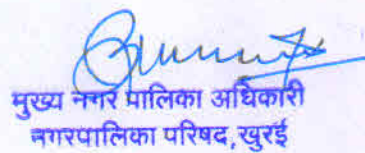 मुख्य नगर पालिका अधिकारी
नगरपालिका परिषद, खुरई